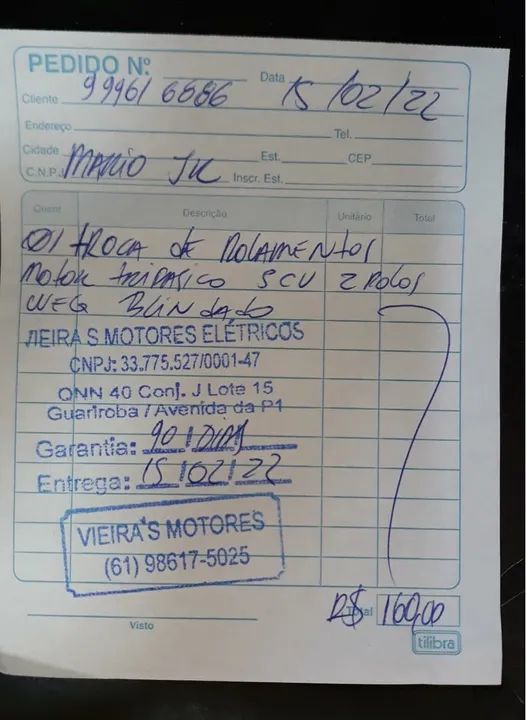 PEDIDO Nº
Data 15/02/22
Cliente 99961 6686
Endereço
Tel.
Cidade MARIO JR Est. CEP
C.N.P.J. Inscr. Est.
Quant Descrição Unitário Total
01 TROCA de ROLAMENTOS
MOTOR TRIFASICO 5CV 2 POLOS
WEG BLINDADO
VIEIRA'S MOTORES ELÉTRICOS
CNPJ: 33.775.527/0001-47
QNN 40 Conj. J Lote 15
Guariroba / Avenida da P1
Garantia: 90 / DIAS
Entrega: 15/02/22
VIEIRA'S MOTORES
(61) 98617-5025
R$ Total 160,00
Visto
tilibra